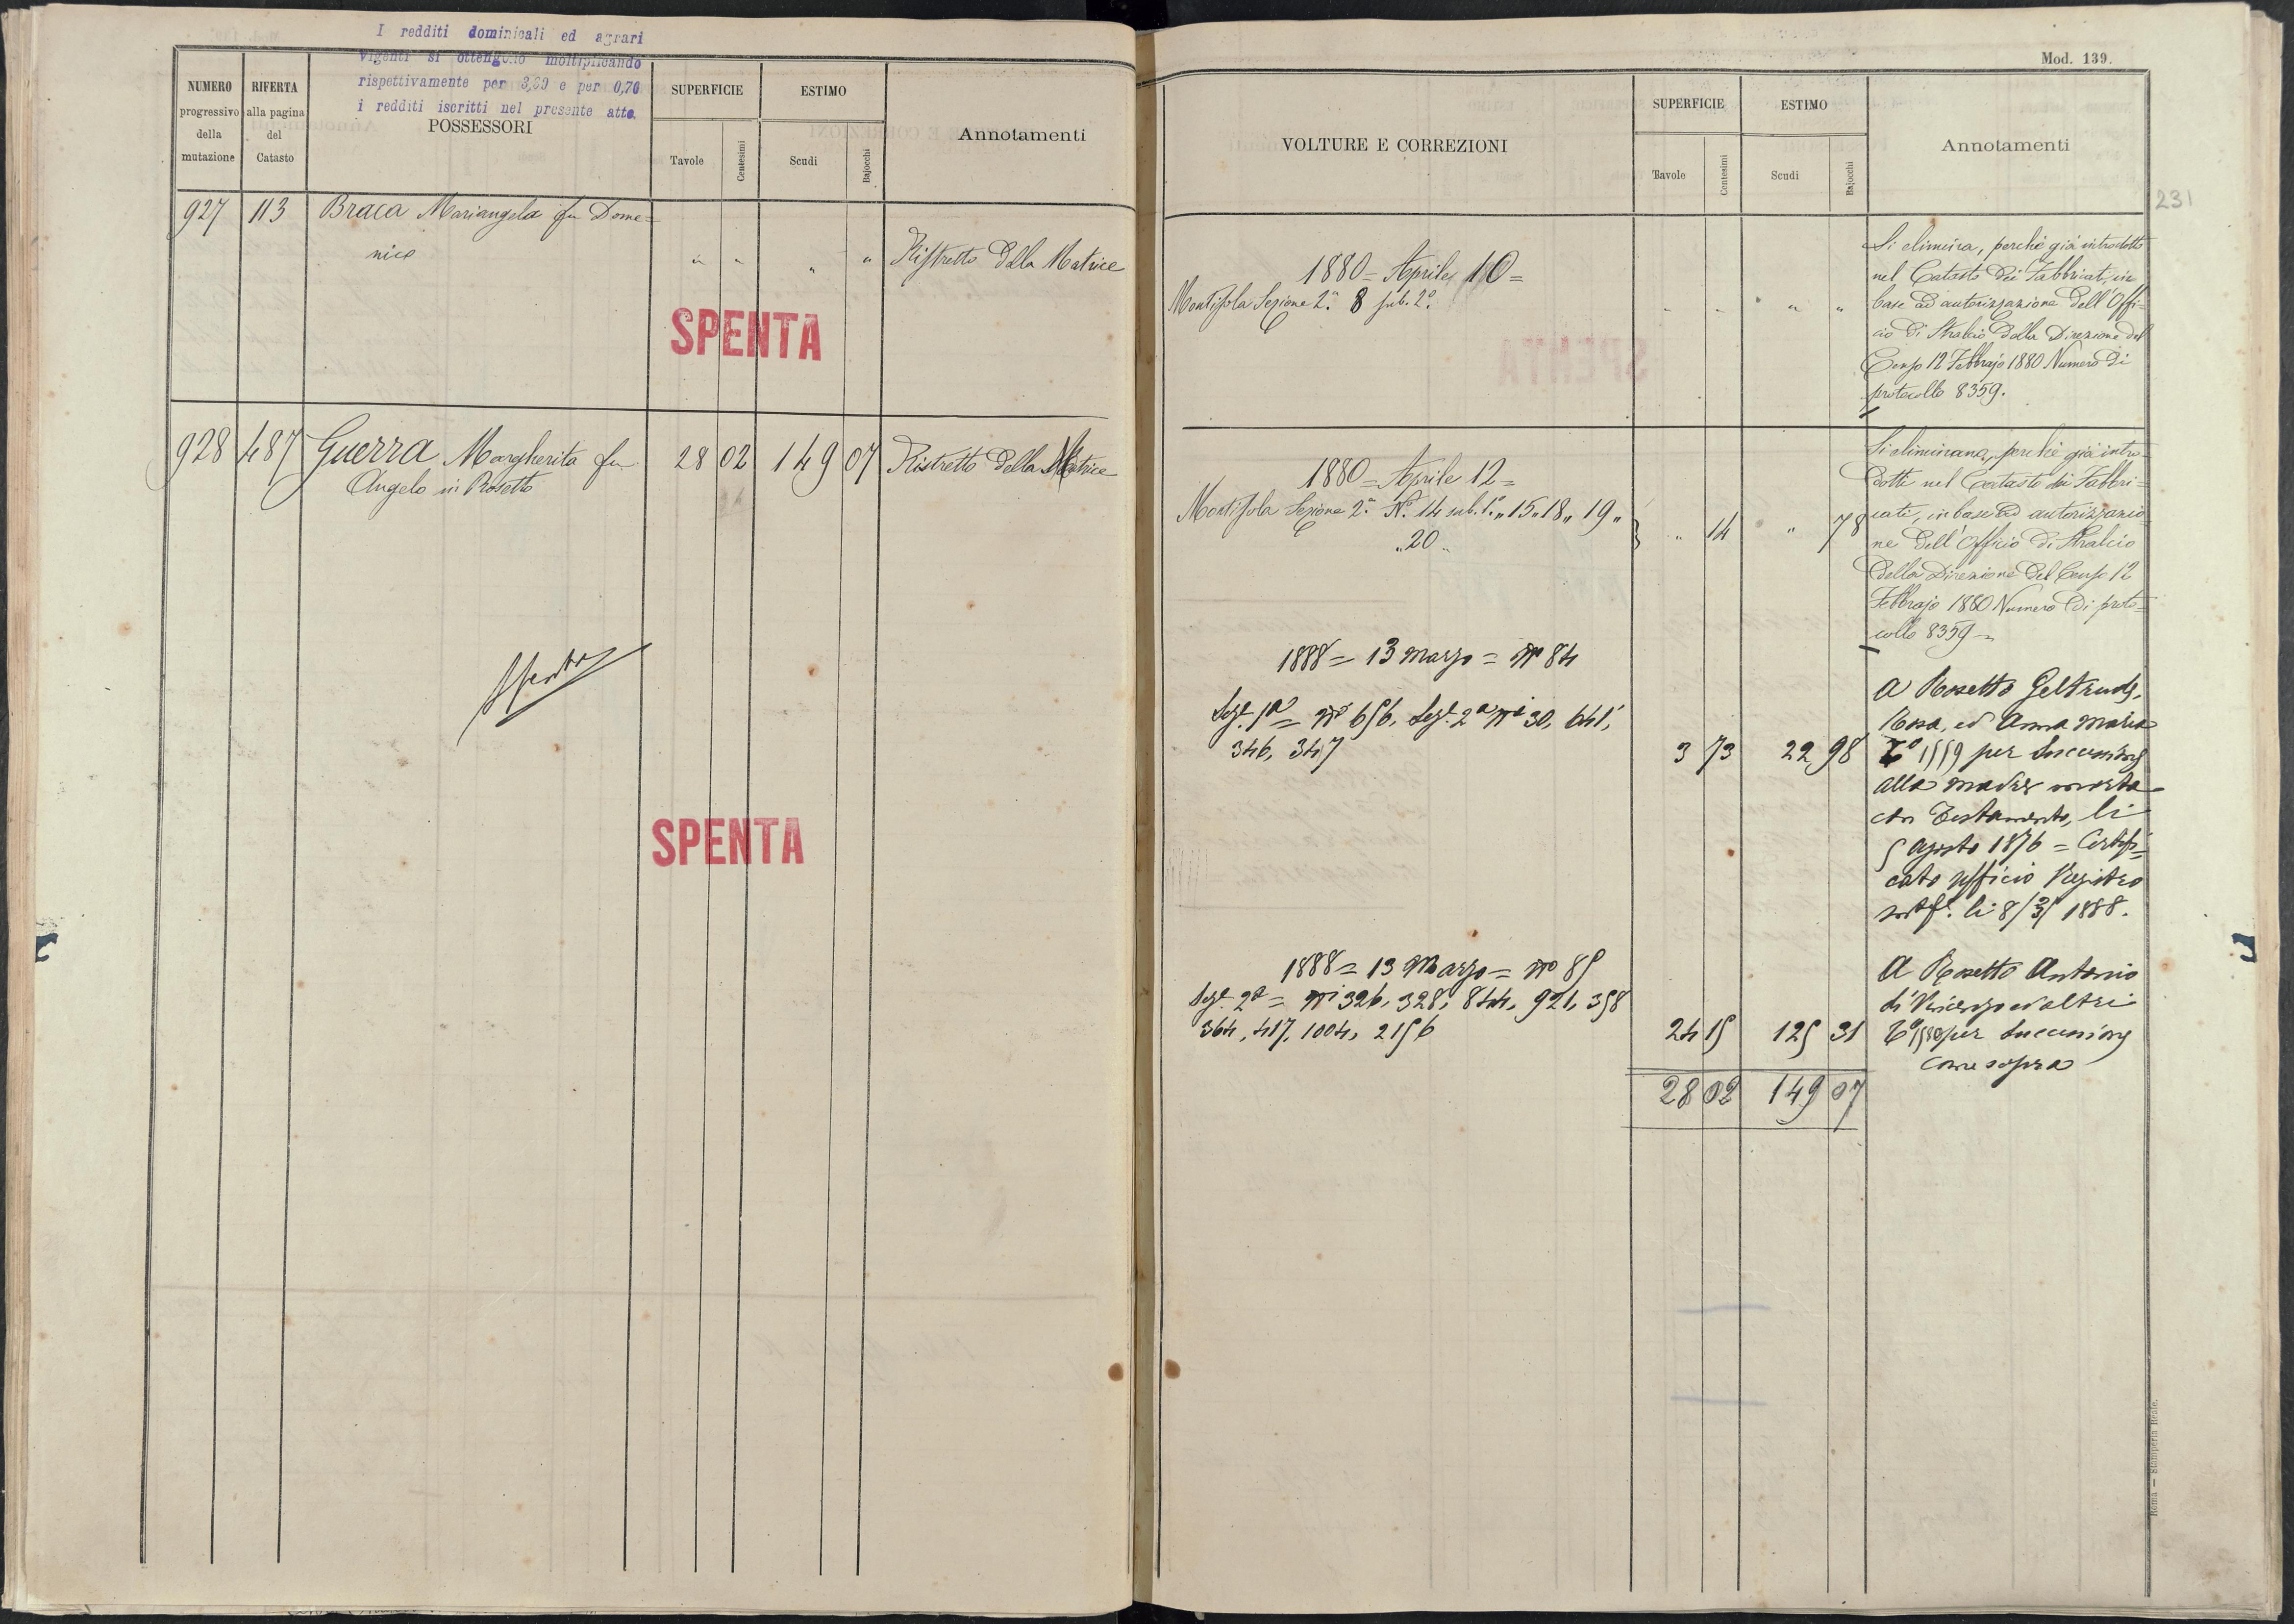 I redditi dominicali ed agrari
vigenti si ottengono moltiplicando
rispettivamente per 3,20 e per 0,70
i redditi iscritti nel presente atto.
NUMERO
progressivo
della
mutazione
RIFERTA
alla pagina
del
Catasto
POSSESSORI
SUPERFICIE
Tavole
Centesimi
ESTIMO
Scudi
Bajocchi
Annotamenti
927 113 Braca Mariangela fu Dome=
nico " " " " Ristretto della Matrice
SPENTA
928 487 Guerra Margherita fu 28 02 149 07 Ristretto della Matrice
Angelo in Rosetto
Spenta
SPENTA
Mod. 139.
VOLTURE E CORREZIONI
SUPERFICIE
Tavole
Centesimi
ESTIMO
Scudi
Bajocchi
Annotamenti
231
1880 = Aprile 10 =
Montisola Sezione 2ª. 8 sub. 2º.
" " " "
Si elimina, perché già introdotto
nel Catasto dei Fabbricati, in
base ad autorizzazione dell'Offi=
cio di Stralcio della Direzione del
Censo 12 Febbrajo 1880 Numero di
protocollo 8359.
1880 = Aprile 12 =
Montisola Sezione 2ª. Nº. 14 sub. 1º. " 15 " 18 " 19 "
" 20 "
" 14 " 78
Si eliminano, perché già intro=
dotti nel Catasto dei Fabbri=
cati, in base ad autorizzazio
ne dell'Officio di Stralcio
della Direzione del Censo 12
Febbrajo 1880 Numero di proto=
collo 8359
1888 = 13 Marzo = Nº 84
Sezº. 1ª = Nº 656, Sezº. 2ª Nⁱ 30, 641,
346, 347
3 73 22 98
A Rosetto Geltrude,
Rosa, ed Anna Maria
1559 per Successione
alla madre morta
con Testamento, li
5 Agosto 1876 = Certifi=
cato ufficio Registro
li 8/3/ 1888.
1888 = 13 Marzo = Nº 85
Sezº. 2ª = Nⁱ 326, 328, 844, 921, 358
364, 417, 1004, 2156
24 15 125 31
A Rosetto Antonio
di Vincenzo ed altri
per Successione
come sopra
28 02 149 07
Roma — Stamperia Reale.